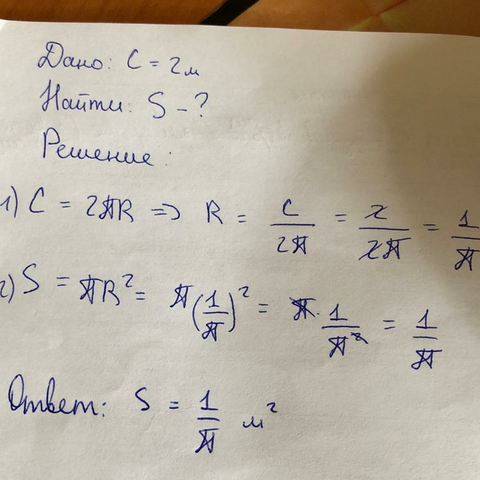 Дано: C = 2м
Найти: S - ?
Решение:
1) C = 2πR => R = C/2π = 2/2π = 1/π
2) S = πR² = π(1/π)² = π · 1/π² = 1/π
Ответ: S = 1/π м²